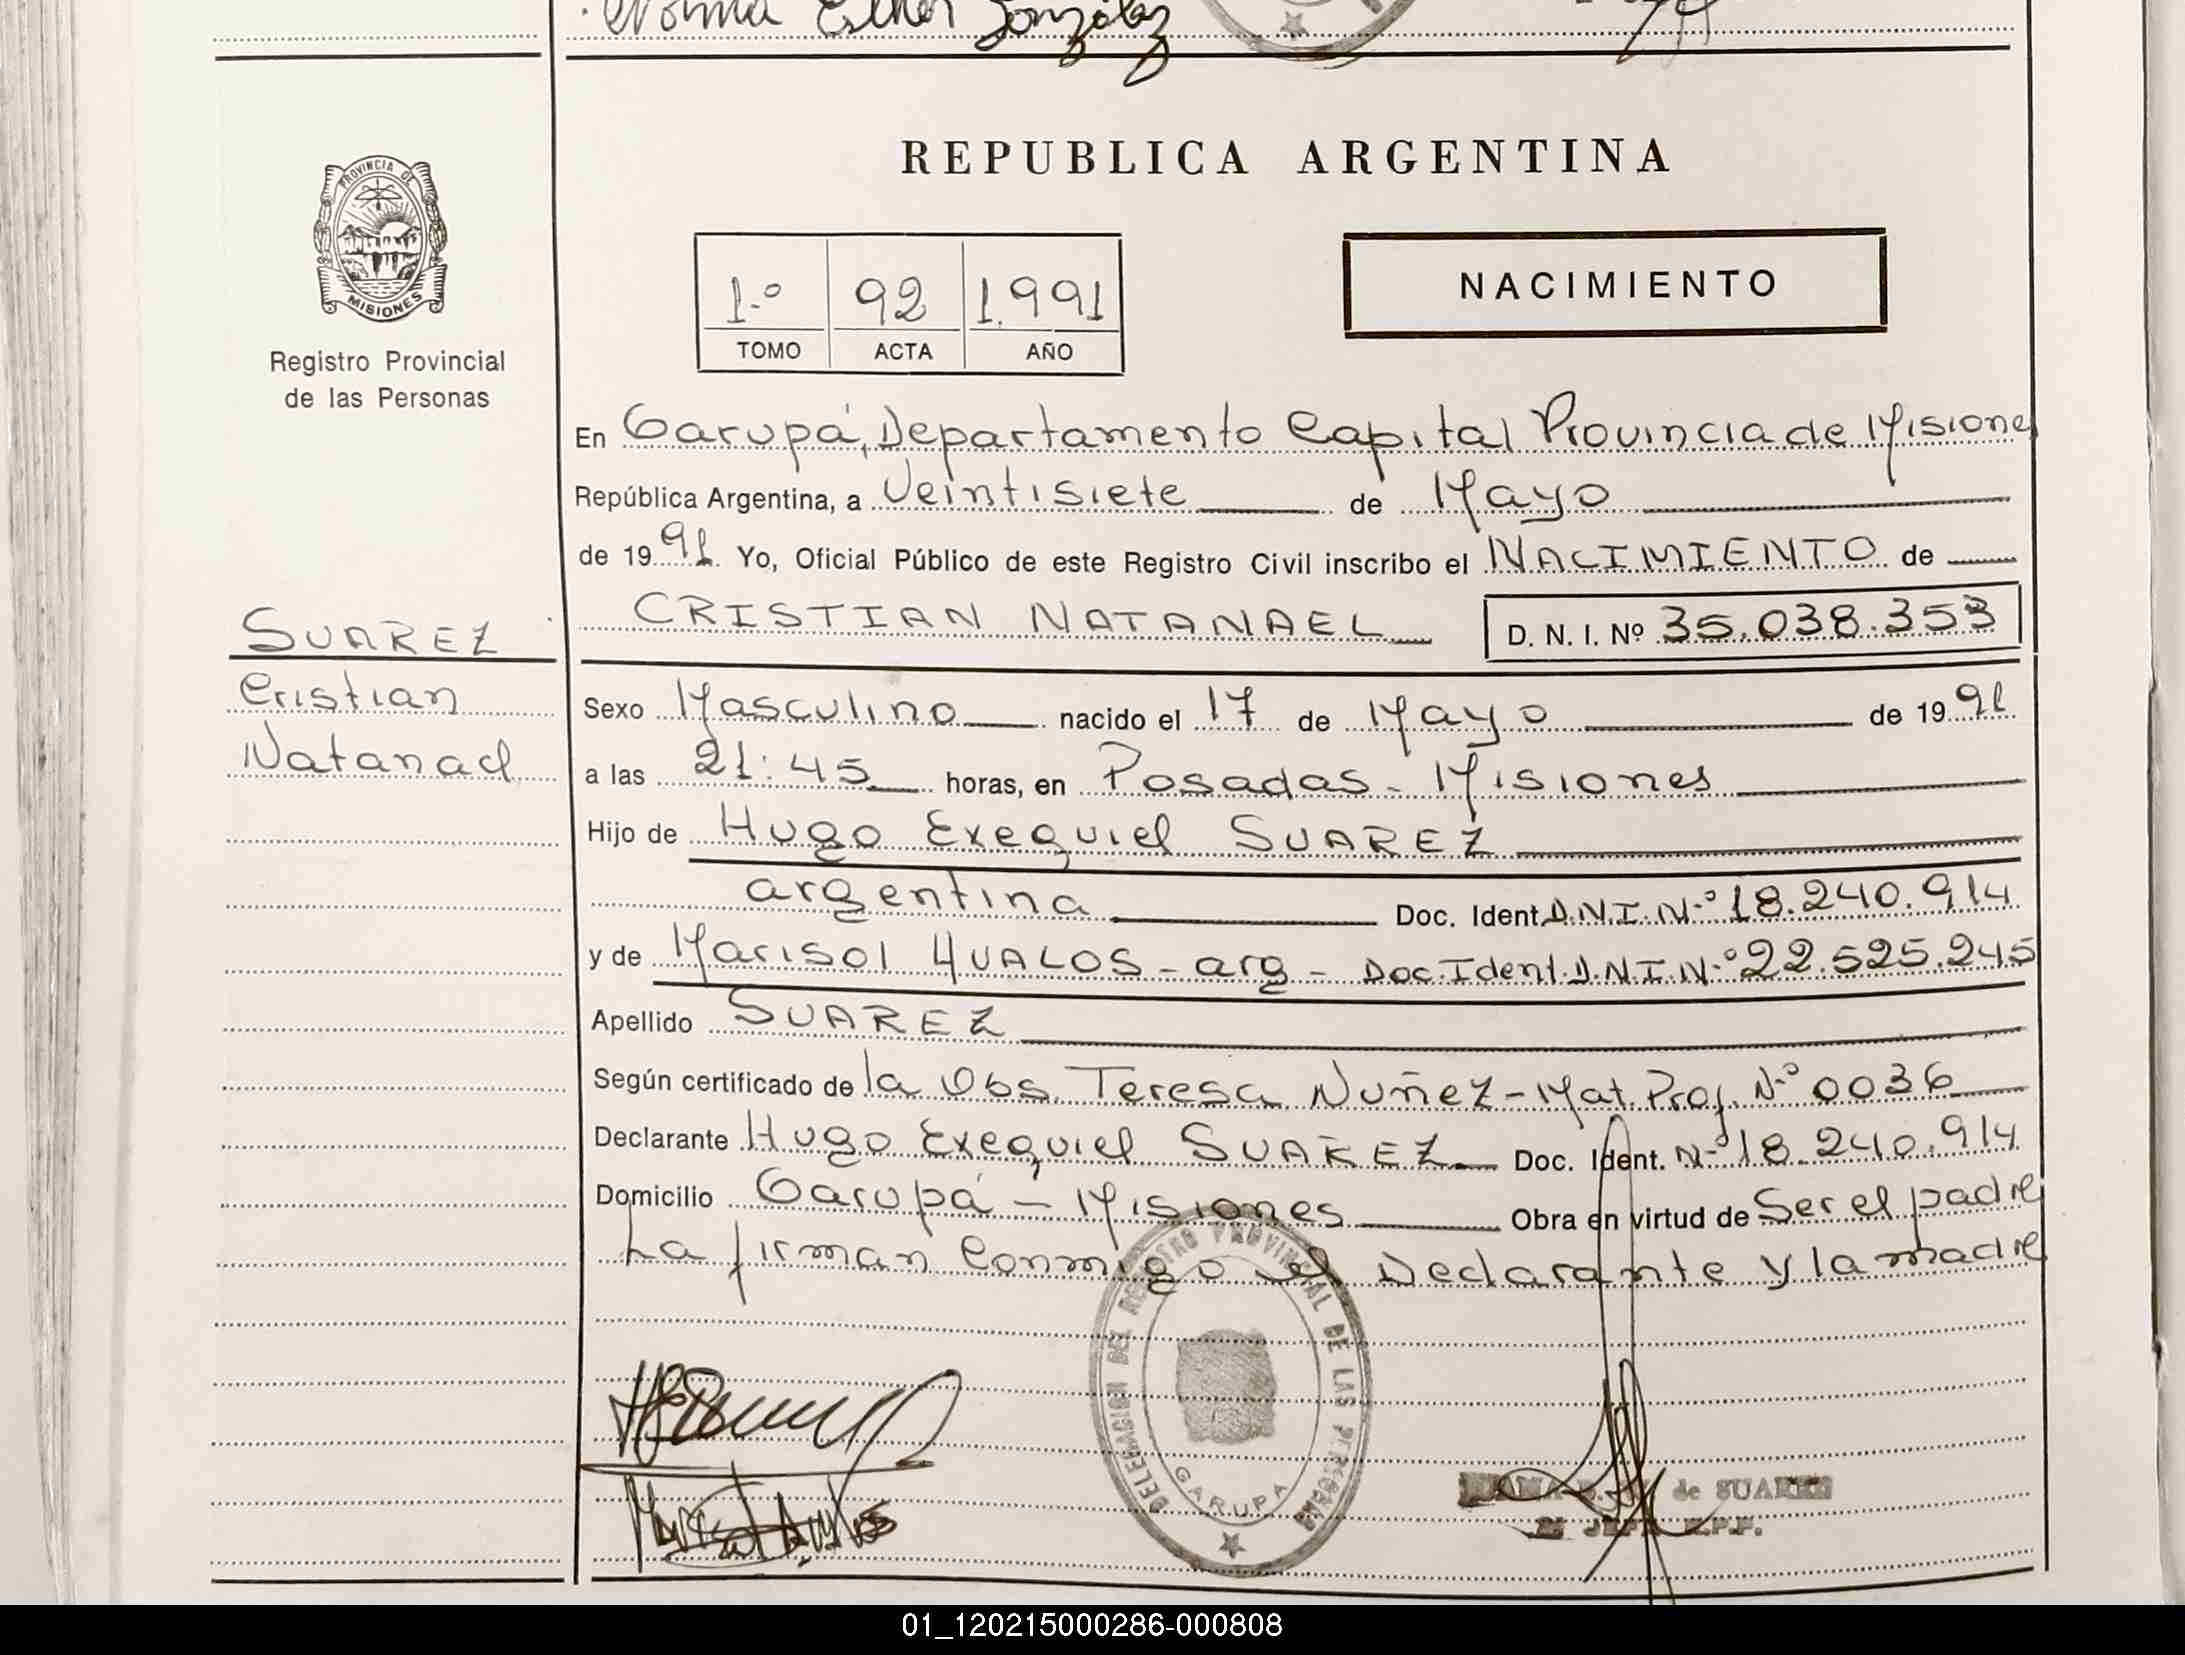 Norma Esther González
PROVINCIA DE
MISIONES
Registro Provincial
de las Personas
REPUBLICA ARGENTINA
1.º 92 1.991
TOMO ACTA AÑO
NACIMIENTO
En Garupá, Departamento Capital Provincia de Misiones
República Argentina, a Veintisiete de Mayo
de 1991. Yo, Oficial Público de este Registro Civil inscribo el NACIMIENTO de
CRISTIAN NATANAEL D. N. I. Nº 35.038.353
SUAREZ
Cristian
Natanael
Sexo Masculino nacido el 17 de Mayo de 1991
a las 21:45 horas, en Posadas - Misiones
Hijo de Hugo Exequiel SUAREZ
argentina Doc. Ident. D.N.I. N.º 18.240.914
y de Marisol AVALOS - arg - Doc. Ident. D.N.I. N.º 22.525.245
Apellido SUAREZ
Según certificado de la Obs. Teresa Nuñez - Mat. Prof. Nº 0036
Declarante Hugo Exequiel SUAREZ Doc. Ident. Nº 18.240.914
Domicilio Garupá - Misiones Obra en virtud de Ser el padre
La firman Conmigo el Declarante y la madre
DELEGACION DEL REGISTRO PROVINCIAL DE LAS PERSONAS
GARUPA
de SUAREZ
JEFE R.P.P.
01_120215000286-000808